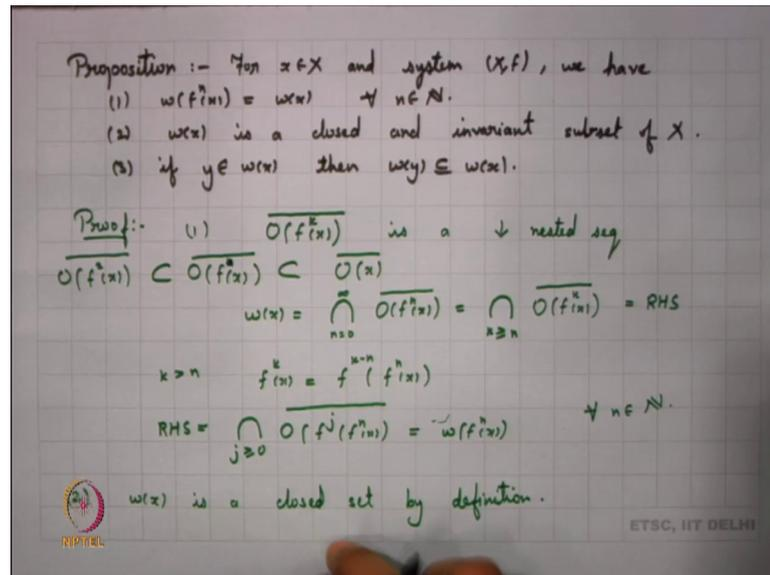 Proposition :- For x∈X and system (X,f), we have
(1) ω(fⁿ(x)) = ω(x) ∀ n∈ℕ.
(2) ω(x) is a closed and invariant subset of X.
(3) if y∈ ω(x) then ω(y) ⊆ ω(x).
Proof:- (1) \overline{O(f^k(x))} is a ↓ nested seq
\overline{O(f²(x))} ⊂ \overline{O(f(x))} ⊂ \overline{O(x)}
ω(x) = ⋂_{n=0}^{∞} \overline{O(fⁿ(x))} = ⋂_{k≥n} \overline{O(f^k(x))} = RHS
k>n f^k(x) = f^{k-n}(fⁿ(x))
RHS = ⋂_{j≥0} \overline{O(f^j(fⁿ(x)))} = ω(fⁿ(x)) ∀ n∈ℕ.
(2) ω(x) is a closed set by definition.
NPTEL
ETSC, IIT DELHI